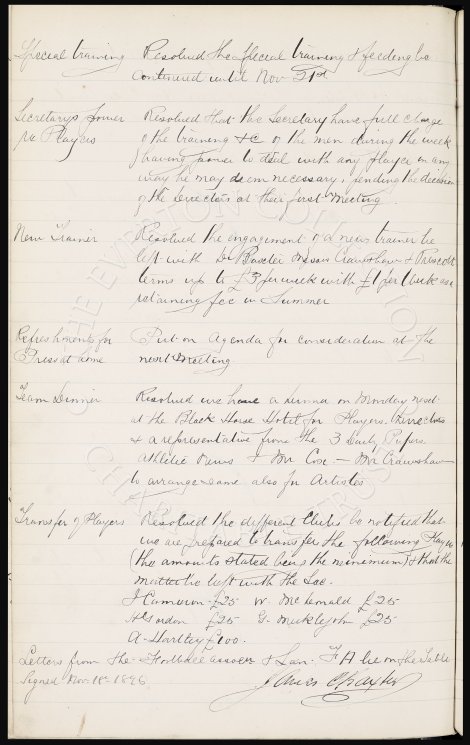 Special training Resolved the special training & feeding be
continued until Nov 21st
Secretarys power Resolved that the Secretary have full charge
re Players of the training &c of the men during the week
& having power to deal with any player in any
way he may deem necessary, pending the decision
of the Directors at their first Meeting.
New Trainer Resolved the engagement of a new trainer be
left with Dr Baxter Messrs Crawshaw & Prescott
terms up to £3 per week with £1 per week as a
retaining fee in Summer
Refreshments for Put on Agenda for consideration at the
Press at home next Meeting
Team Dinner Resolved we have a dinner on Monday next
at the Black Horse Hotel for Players, Directors
& a representative from the 3 Daily Papers
Athletic News & Mr Cox — Mr Crawshaw
to arrange same also for Artistes
Transfer of Players Resolved the different Clubs be notified that
we are prepared to transfer the following Players
(the amounts stated being the minimum) & that the
matter be left with the Sec.
J Cameron £25 W. McDonald £25
H Gordon £25 G. Meiklejohn £25
A. Hartley £100.
Letters from the Football assocn & Lan. F A lie on the Table
Signed Nov. 18th 1896 James C Baxter
THE EVERTON COLLECTION
CHARITABLE TRUST